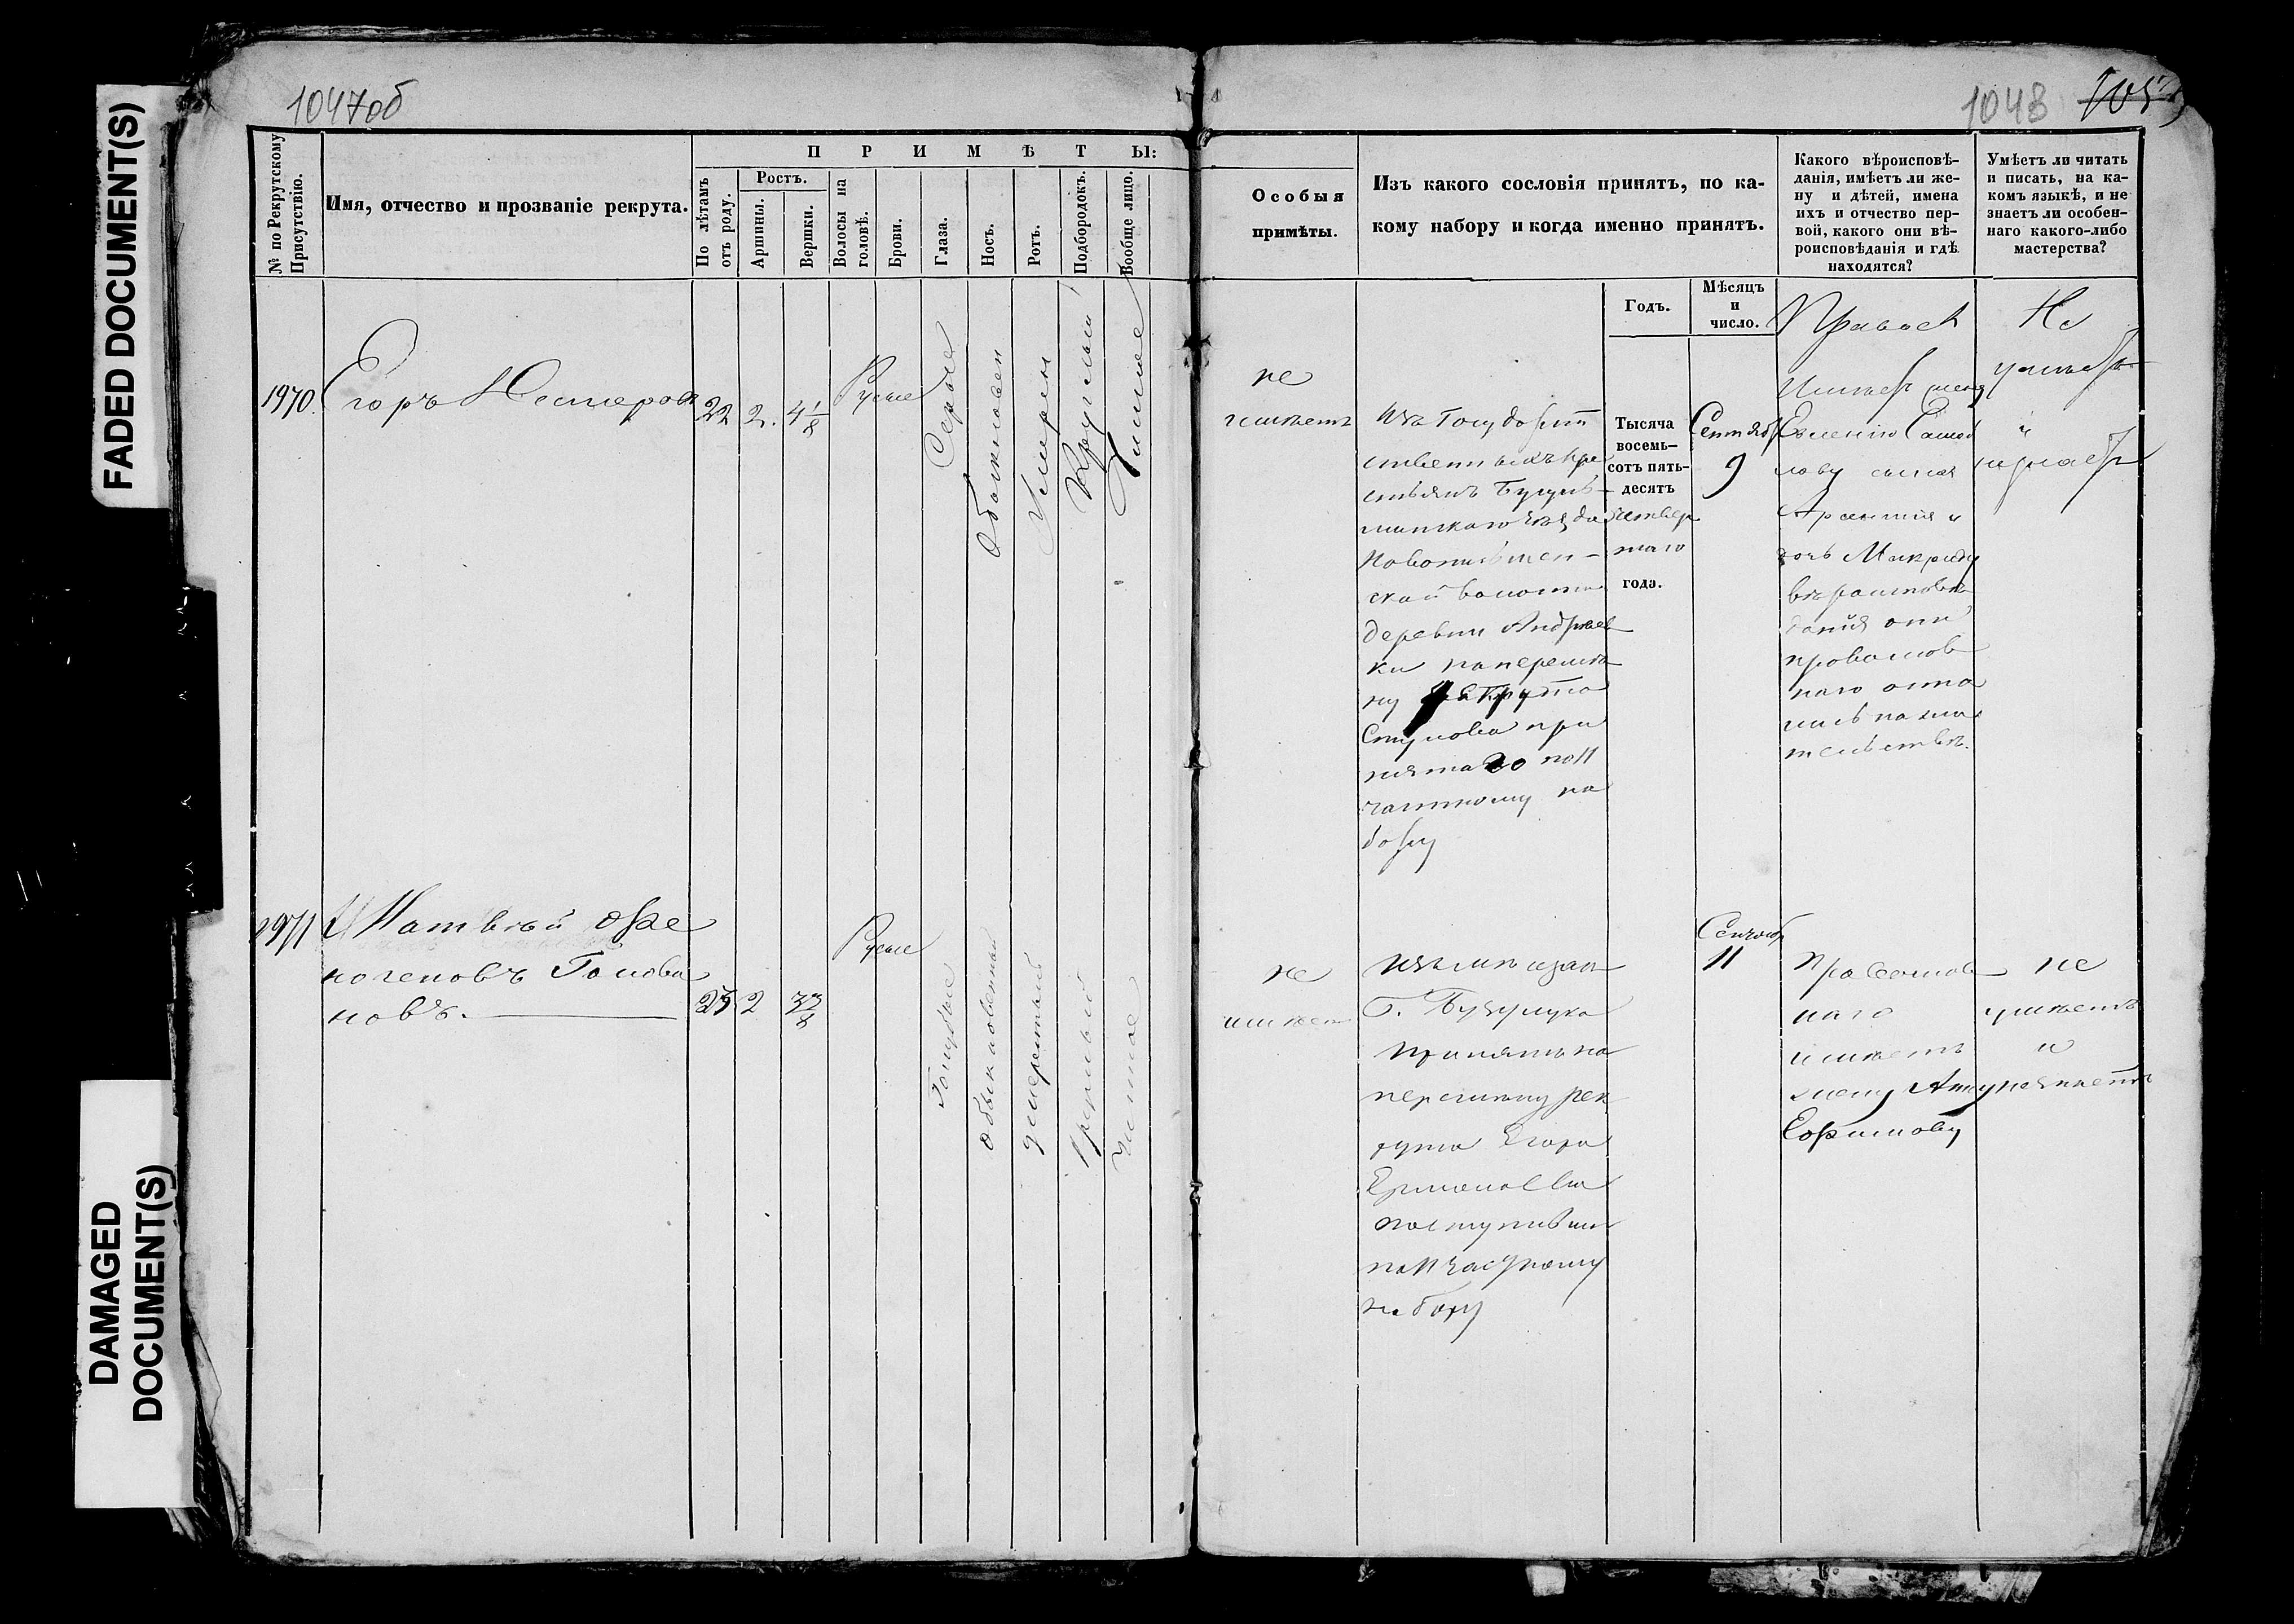 FADED DOCUMENT(S)
DAMAGED
DOCUMENT(S)
1047об
№ по Рекрутскому
Присутствію.
Имя, отчество и прозваніе рекрута.
ПРИМѢТЫ:
По лѣтамъ
отъ роду.
Ростъ.
Аршины.
Вершки.
Волосы на
головѣ.
Брови.
Глаза.
Носъ.
Ротъ.
Подбородокъ.
Вообще лицо.
1970.
Егоръ Нестеровъ
22
2.
4 1/8
Русые
Серые
Обыкновен
Умерен
Круглый
1971
Матвѣй
Голова
новъ.
2
Русые
Голубые
обыкновенный
умеренный
Чистое
1048
Особыя
примѣты.
Изъ какого сословія принятъ, по ка-
кому набору и когда именно принятъ.
Какого вѣроисповѣ-
данія, имѣетъ ли же-
ну и дѣтей, имена
ихъ и отчество пер-
вой, какого они вѣ-
роисповѣданія и гдѣ
находятся?
Умѣетъ ли читать
и писать, на ка-
комъ языкѣ, и не
знаетъ ли особен-
наго какого-либо
мастерства?
Годъ.
Мѣсяцъ
и
число.
не
имѣетъ
Изъ Государст
ственныхъ кре
стьянъ Бугуль-
минскаго уѣзда
ской волости
деревни Андреев
ки на перемѣ
ну рекрута
при
нятаго по 11
частному на
бору
Тысяча
восемь-
сотъ пять-
десятъ
четвер
таго
года.
Сентябр
9
Правосл
Имѣет жену
сына
дочь Макриду
вѣроисповѣ
данія они
православ
наго
Не
умѣетъ
и
не
имѣет
изъ мѣщан
г. Бузулука
принятъ на
перемѣну рек
рута Егора
Ермолаева
поступивш
по 11 частному
набору
Сентябр
11
православ
наго
имѣетъ
жену
Ефимову
не
умѣетъ
и